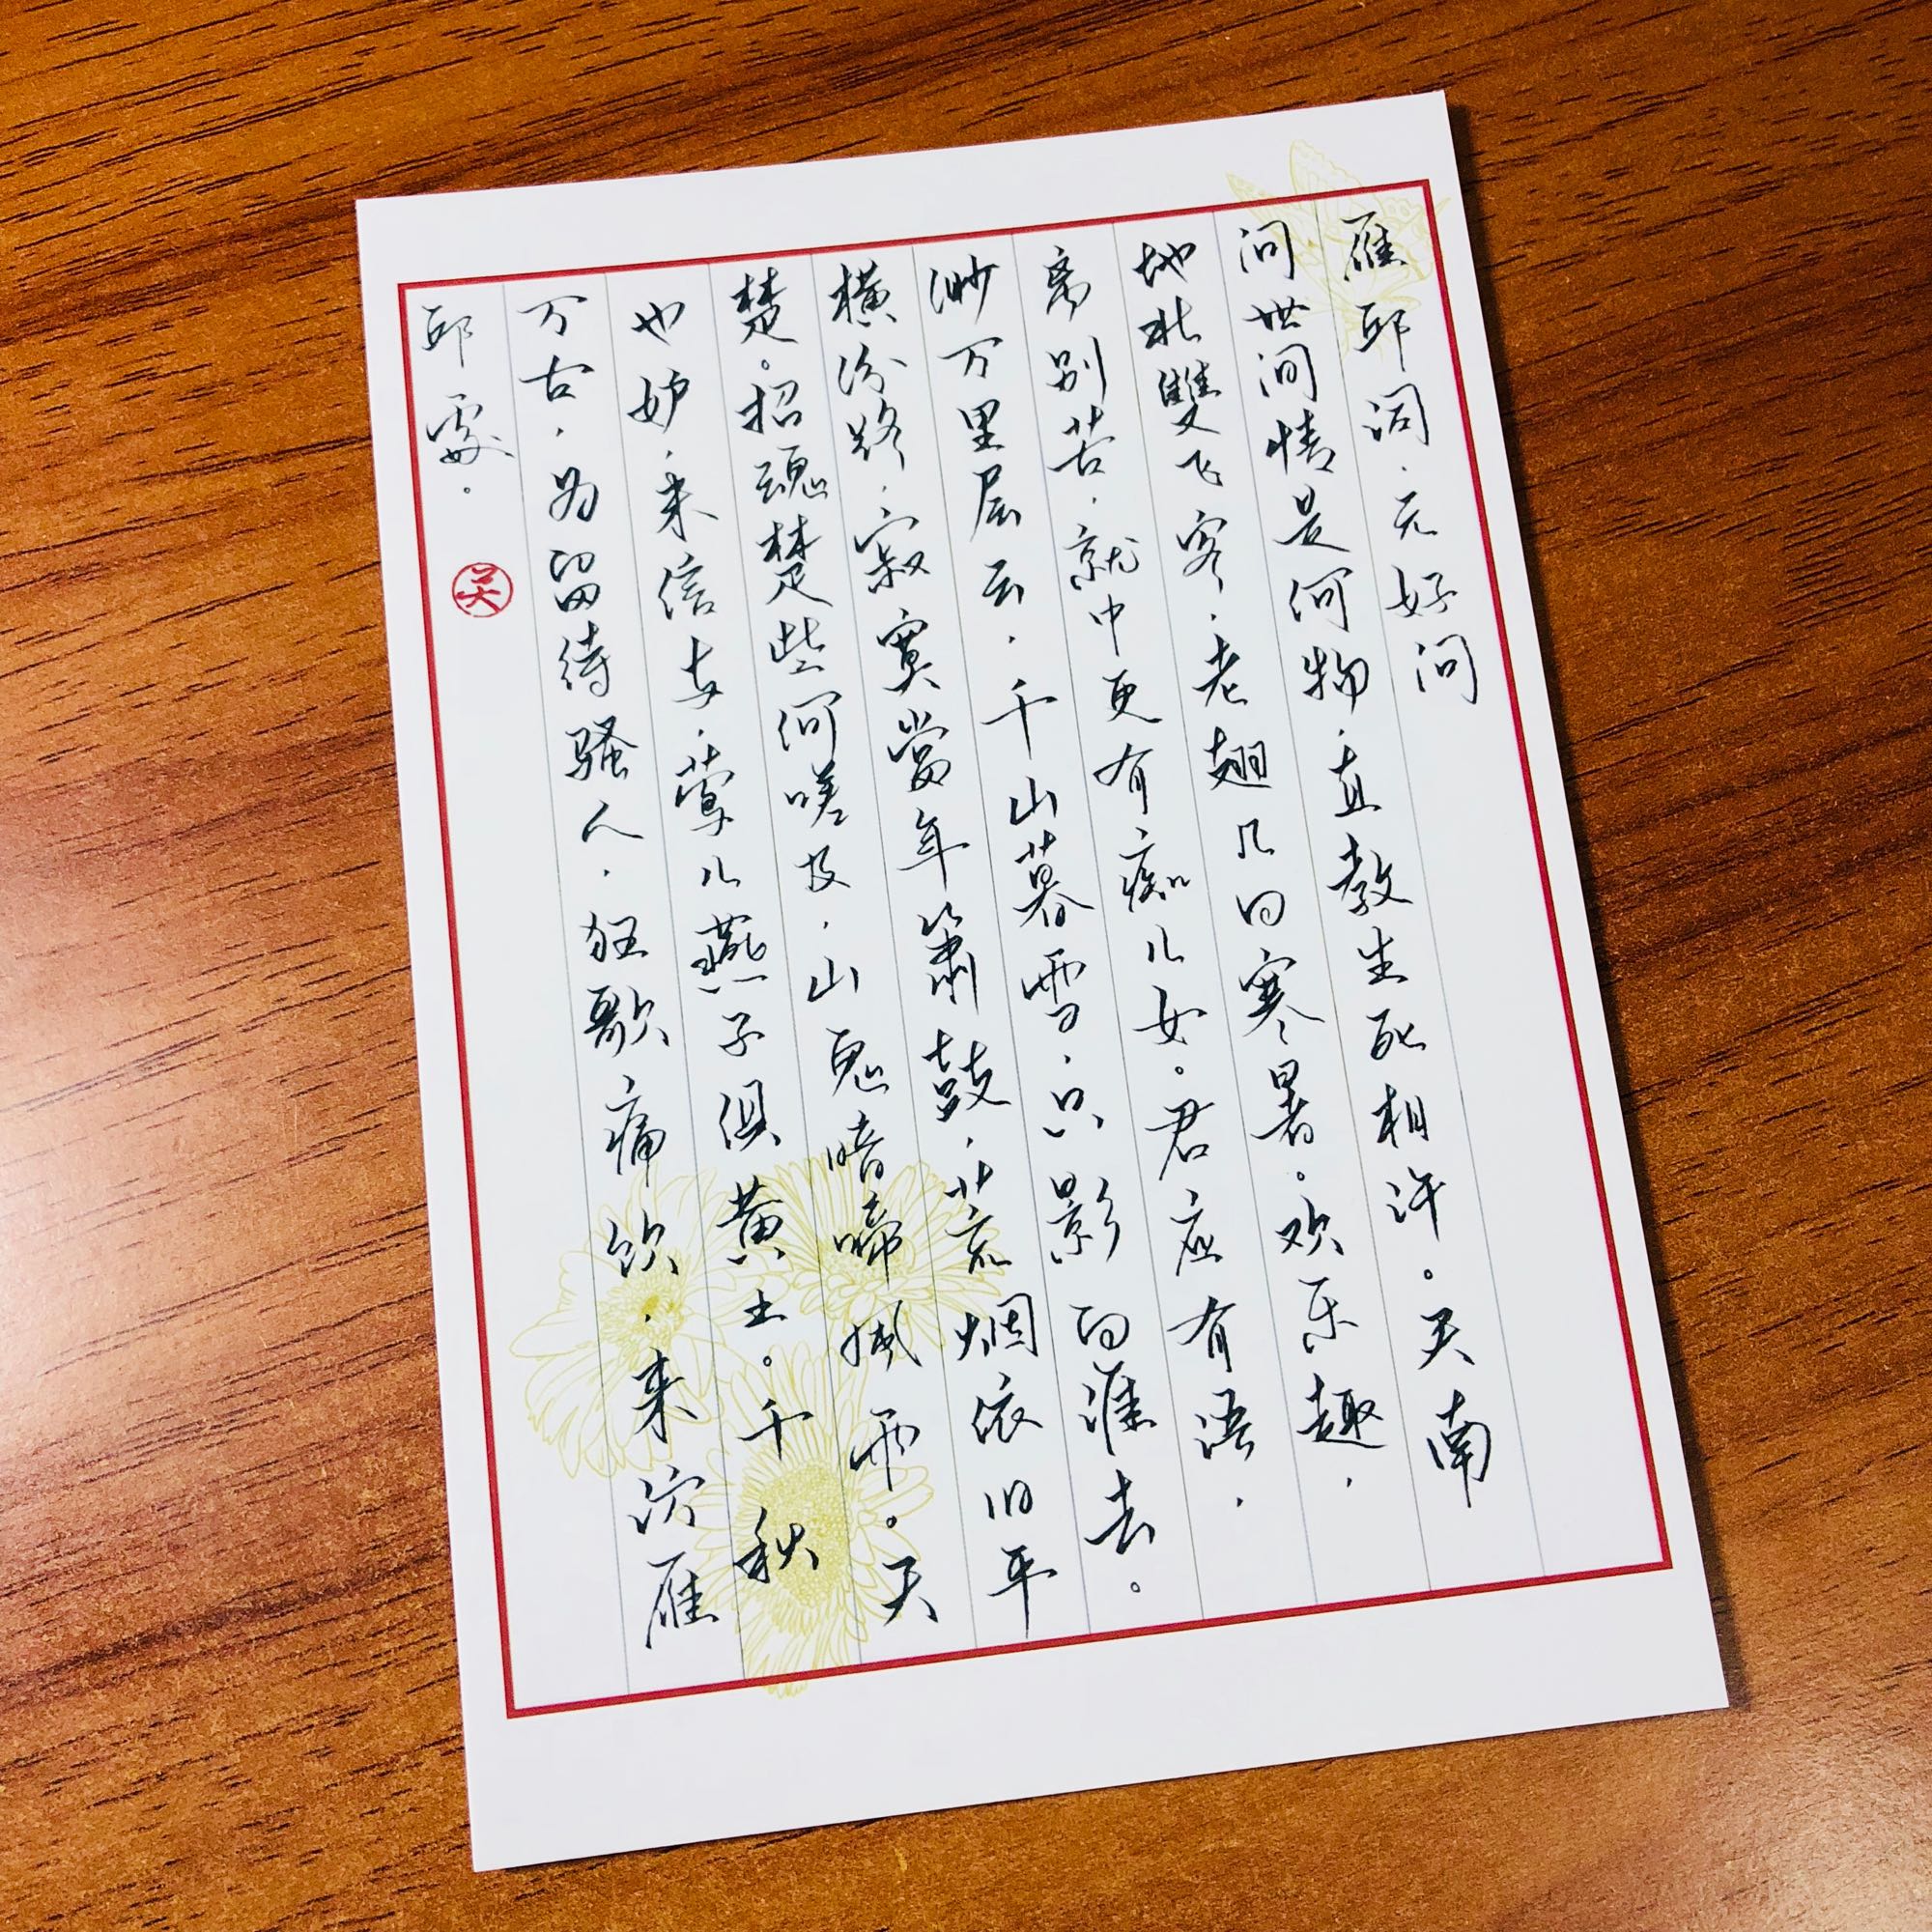 雁邱词·元好问
问世间情是何物，直教生死相许。天南
地北雙飞客，老翅几回寒暑。欢乐趣，
离别苦，就中更有痴儿女。君应有语，
渺万里层云，千山暮雪，只影向谁去。
横汾路，寂寞當年簫鼓，荒烟依旧平
楚。招魂楚些何嗟及，山鬼暗啼風雨。天
也妒，未信与，莺儿燕子俱黄土。千秋
万古，为留待骚人，狂歌痛饮，来访雁
邱處。